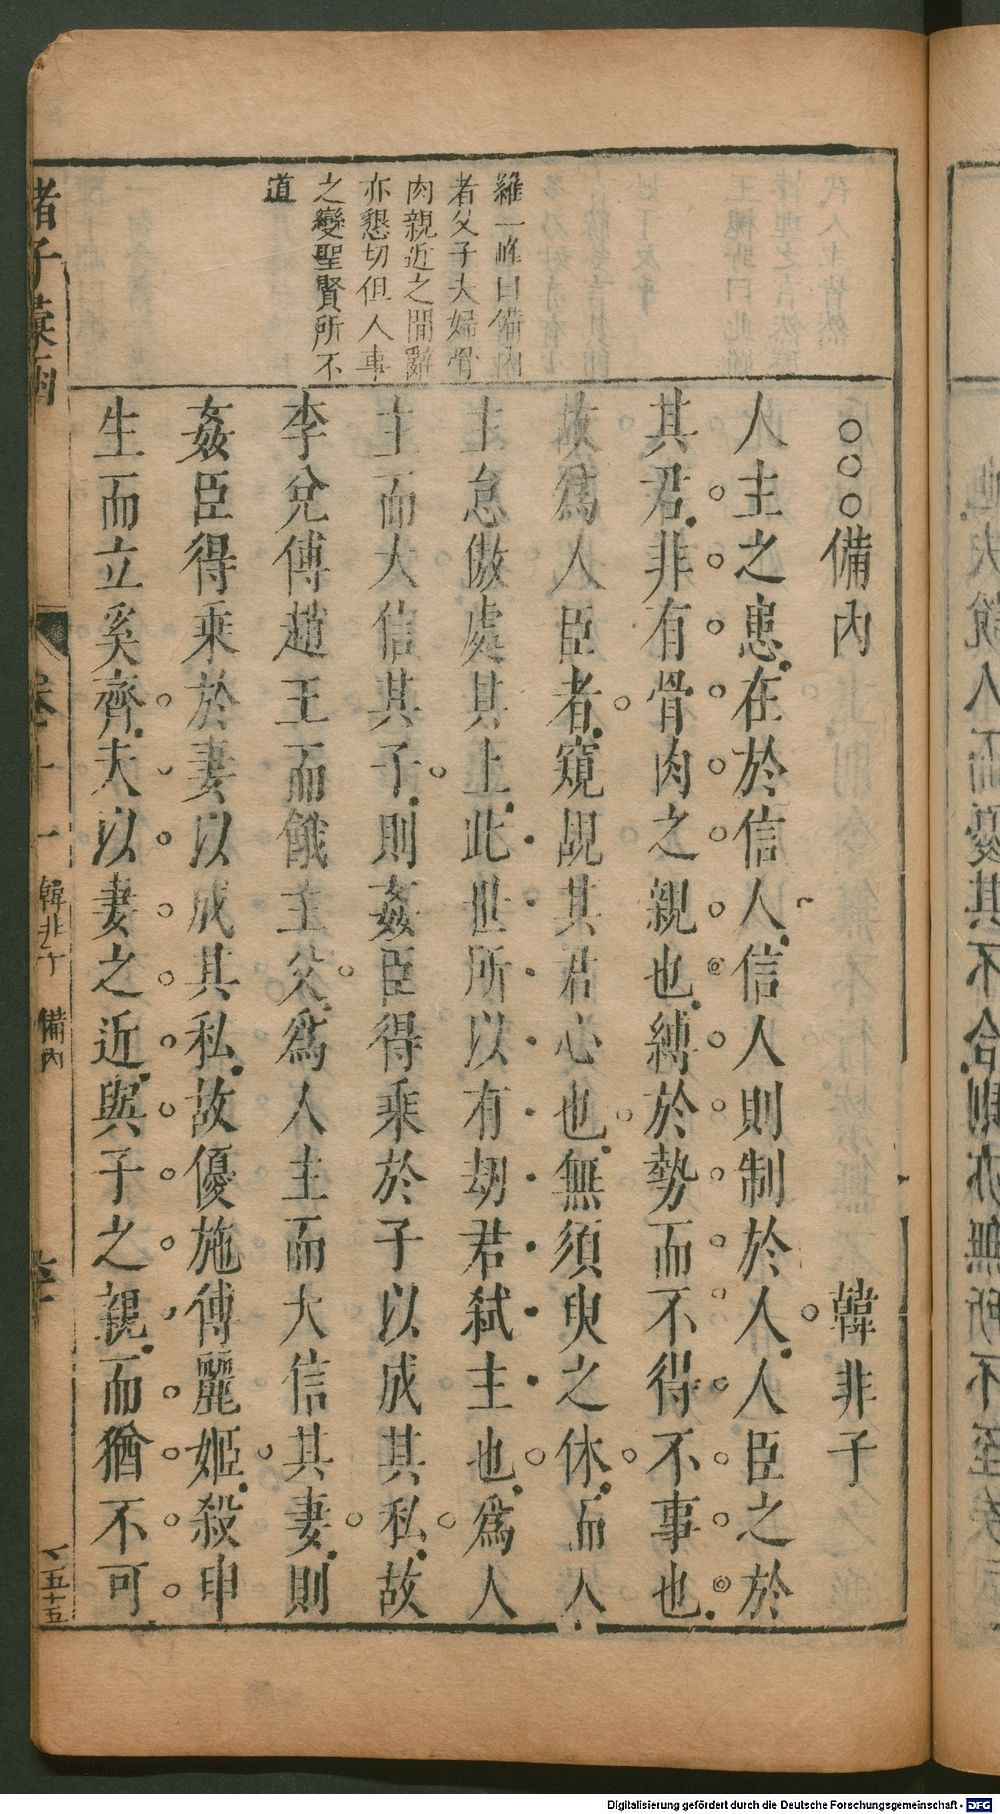 羅一峰曰備內
者父子夫婦骨
肉親近之間辭
亦懇切但人事
之變聖賢所不
道
○○○備內 韓非子
人主之患在於信人信人則制於人人臣之於
其君非有骨肉之親也縛於勢而不得不事也
故爲人臣者窺覘其君心也無須臾之休而人
主怠傲處其上此世所以有劫君弑主也爲人
主而大信其子則姦臣得乘於子以成其私故
李兌傅趙王而餓主父爲人主而大信其妻則
姦臣得乘於妻以成其私故優施傅麗姬殺申
生而立奚齊夫以妻之近與子之親而猶不可
諸子彙函 卷十一 韓非子 備內
五十五
Digitalisierung gefördert durch die Deutsche Forschungsgemeinschaft - DFG